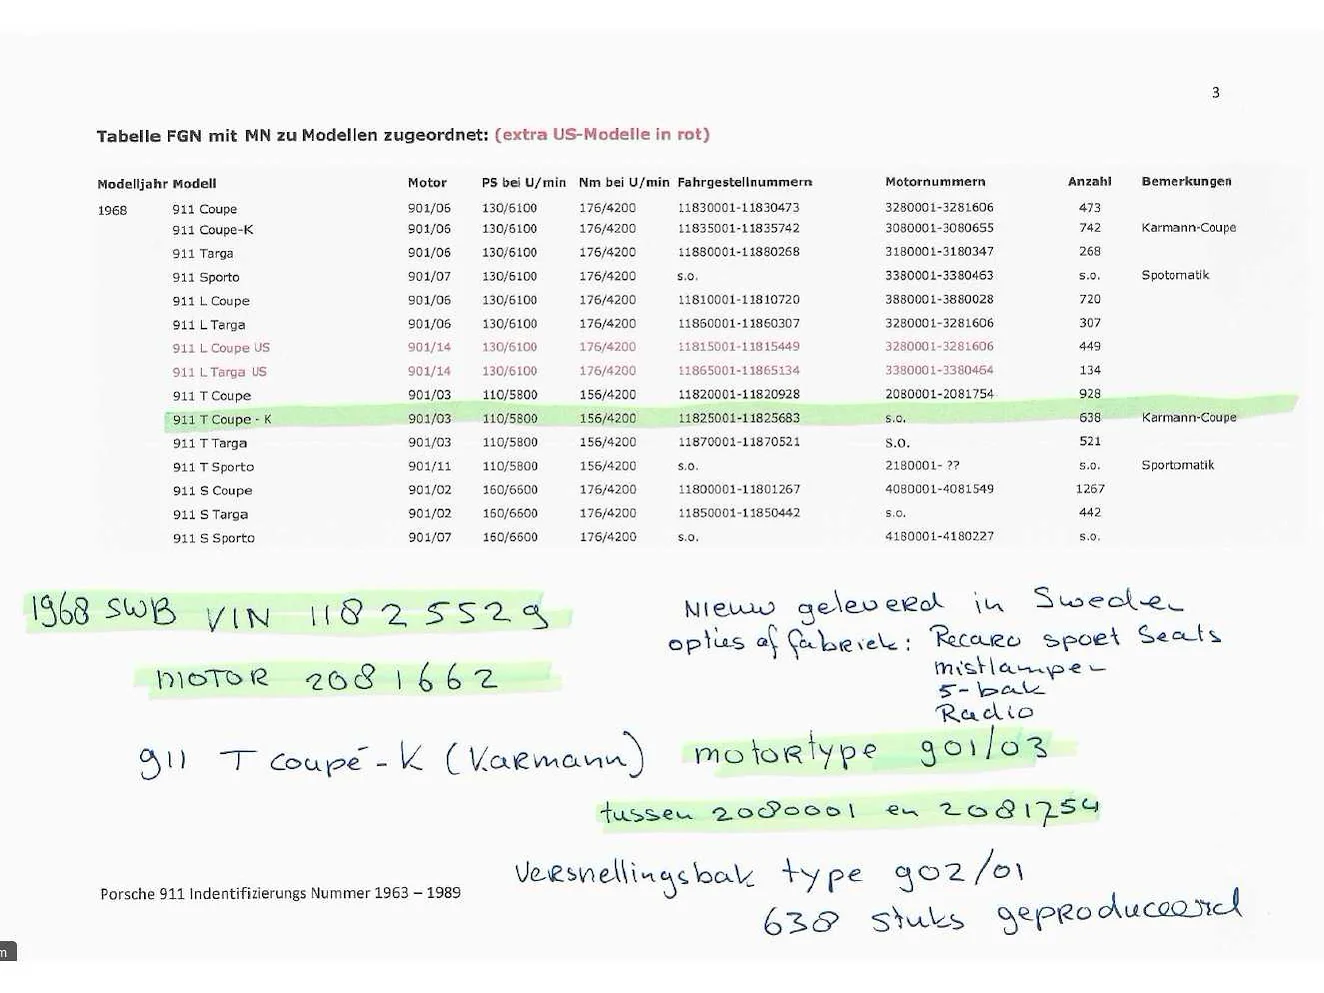 3
Tabelle FGN mit MN zu Modellen zugeordnet: (extra US-Modelle in rot)
Modelljahr Modell Motor PS bei U/min Nm bei U/min Fahrgestellnummern Motornummern Anzahl Bemerkungen
1968 911 Coupe 901/06 130/6100 176/4200 11830001-11830473 3280001-3281606 473
911 Coupe-K 901/06 130/6100 176/4200 11835001-11835742 3080001-3080655 742 Karmann-Coupe
911 Targa 901/06 130/6100 176/4200 11880001-11880268 3180001-3180347 268
911 Sporto 901/07 130/6100 176/4200 s.o. 3380001-3380463 s.o. Spotomatik
911 L Coupe 901/06 130/6100 176/4200 11810001-11810720 3880001-3880028 720
911 L Targa 901/06 130/6100 176/4200 11860001-11860307 3280001-3281606 307
911 L Coupe US 901/14 130/6100 176/4200 11815001-11815449 3280001-3281606 449
911 L Targa US 901/14 130/6100 176/4200 11865001-11865134 3380001-3380464 134
911 T Coupe 901/03 110/5800 156/4200 11820001-11820928 2080001-2081754 928
911 T Coupe - K 901/03 110/5800 156/4200 11825001-11825683 s.o. 638 Karmann-Coupe
911 T Targa 901/03 110/5800 156/4200 11870001-11870521 s.o. 521
911 T Sporto 901/11 110/5800 156/4200 s.o. 2180001- ?? s.o. Sportomatik
911 S Coupe 901/02 160/6600 176/4200 11800001-11801267 4080001-4081549 1267
911 S Targa 901/02 160/6600 176/4200 11850001-11850442 s.o. 442
911 S Sporto 901/07 160/6600 176/4200 s.o. 4180001-4180227 s.o.
1968 SWB VIN 11825529
MOTOR 2081662
911 T coupé - K (Karmann)
Nieuw geleverd in Sweden
opties af fabriek: Recaro sport Seats
mistlampen
5-bak
Radio
motortype 901/03
tussen 2080001 en 2081754
Versnellingsbak type 902/01
638 stuks geproduceerd
Porsche 911 Indentifizierungs Nummer 1963 – 1989
m